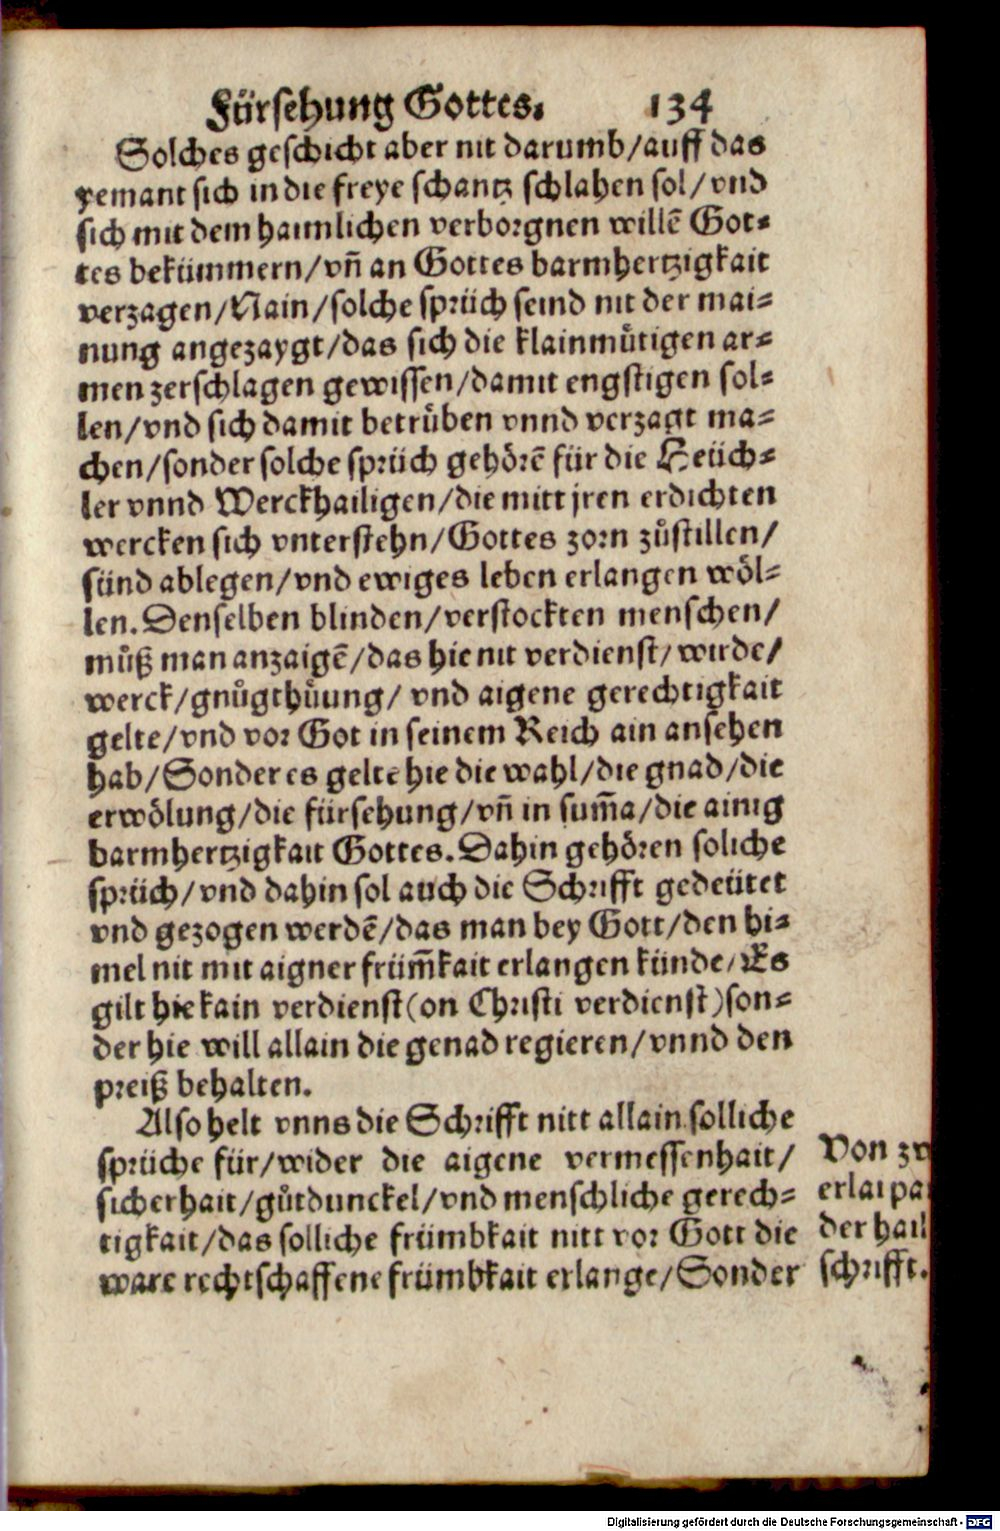 Fürsehung Gottes. 134
Solches geschicht aber nit darumb/auff das
yemant sich in die freye schantz schlahen sol/vnd
sich mit dem haimlichen verborgnen willē Got=
tes bekümmern/vñ an Gottes barmhertzigkait
verzagen/Nain/solche sprüch seind nit der mai=
nung angezaygt/das sich die klainmůtigen ar=
men zerschlagen gewissen/damit engstigen sol=
len/vnd sich damit betrůben vnnd verzagt ma=
chen/sonder solche sprüch gehörē für die Heüch=
ler vnnd Werckhailigen/die mitt jren erdichten
wercken sich vnterstehn/Gottes zorn zůstillen/
sünd ablegen/vnd ewiges leben erlangen wöl=
len. Denselben blinden/verstockten menschen/
můß man anzaigē/das hie nit verdienst/wirde/
werck/gnůgthůung/ vnd aigene gerechtigkait
gelte/vnd vor Got in seinem Reich ain ansehen
hab/Sonder es gelte hie die wahl/die gnad/die
erwölung/die fürsehung/vñ in sum̃a/die ainig
barmhertzigkait Gottes. Dahin gehören soliche
sprüch/vnd dahin sol auch die Schrifft gedeütet
vnd gezogen werdē/das man bey Gott/den hi=
mel nit mit aigner früm̃kait erlangen künde/Es
gilt hie kain verdienst(on Christi verdienst)son=
der hie will allain die genad regieren/vnnd den
preiß behalten.
Also helt vnns die Schrifft nitt allain solliche
sprüche für/wider die aigene vermessenhait/
sicherhait/gůtdunckel/vnd menschliche gerech=
tigkait/das solliche frümbkait nitt vor Gott die
ware rechtschaffene frümbkait erlange/Sonder
Von zw
erlai pa
der hail
schrifft.
Digitalisierung gefördert durch die Deutsche Forschungsgemeinschaft - DFG